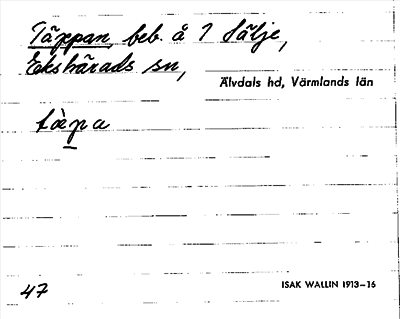 Täppan, beb. å 1 Sälje,
Ekshärads sn,
Älvdals hd, Värmlands län
tàpa
47
ISAK WALLIN 1913-16